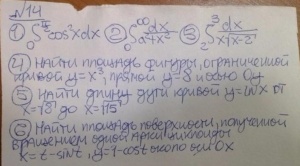 №14
1) ∫₀^π cos²x dx 2) ∫₀^∞ dx/(4+x²) 3) ∫₂³ dx/(x√(x-2))
4) НАЙТИ ПЛОЩАДЬ ФИГУРЫ, ОГРАНИЧЕННОЙ
КРИВОЙ y=x³, ПРЯМОЙ y=8 И ОСЬЮ Oy
5) НАЙТИ ДЛИНУ ДУГИ КРИВОЙ y=ln x ОТ
x=√8 ДО x=√15
6) НАЙТИ ПЛОЩАДЬ ПОВЕРХНОСТИ, ПОЛУЧЕННОЙ
ВРАЩЕНИЕМ ОДНОЙ АРКИ ЦИКЛОИДЫ
x=t-sint, y=1-cost ОКОЛО ОСИ Ox